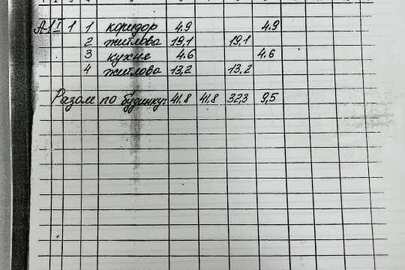 А-1 I 1 1 коридор 4.9 4.9
2 житлова 19,1 19,1
3 кухня 4.6 4.6
4 житлова 13,2 13,2
Разом по будинку: 41.8 41.8 32,3 9,5